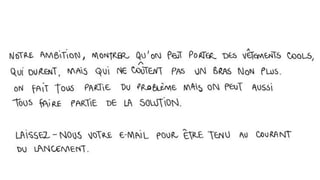 NOTRE AMBITION, MONTRER QU'ON PEUT PORTER DES VÊTEMENTS COOLS,
QUI DURENT, MAIS QUI NE COÛTENT PAS UN BRAS NON PLUS.
ON FAIT TOUS PARTIE DU PROBLÈME MAIS ON PEUT AUSSI
TOUS FAIRE PARTIE DE LA SOLUTION.
LAISSEZ-NOUS VOTRE E-MAIL POUR ÊTRE TENU AU COURANT
DU LANCEMENT.